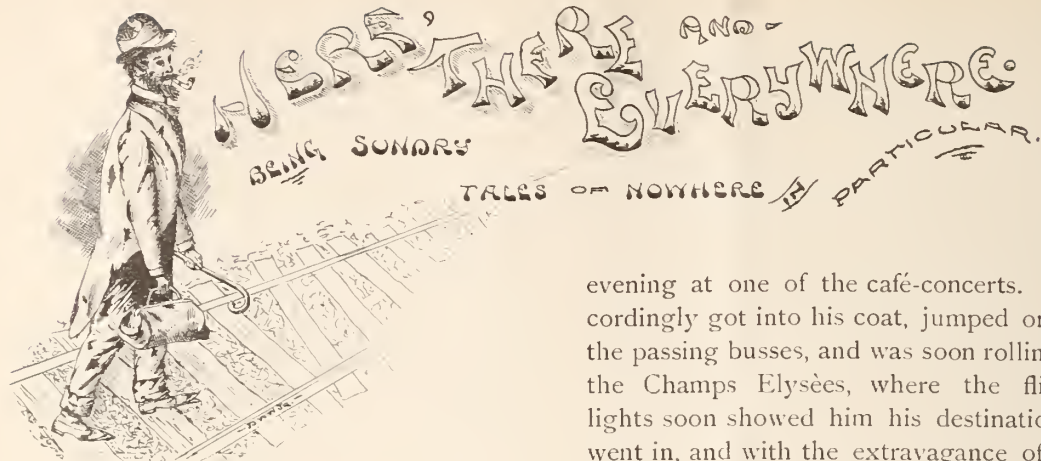 HERE, THERE AND
EVERYWHERE.
BEING SUNDRY
TALES OF NOWHERE IN PARTICULAR.
evening at one of the café-concerts.
cordingly got into his coat, jumped
the passing busses, and was soon
the Champs Elysèes, where the
lights soon showed him his
went in, and with the extravagance